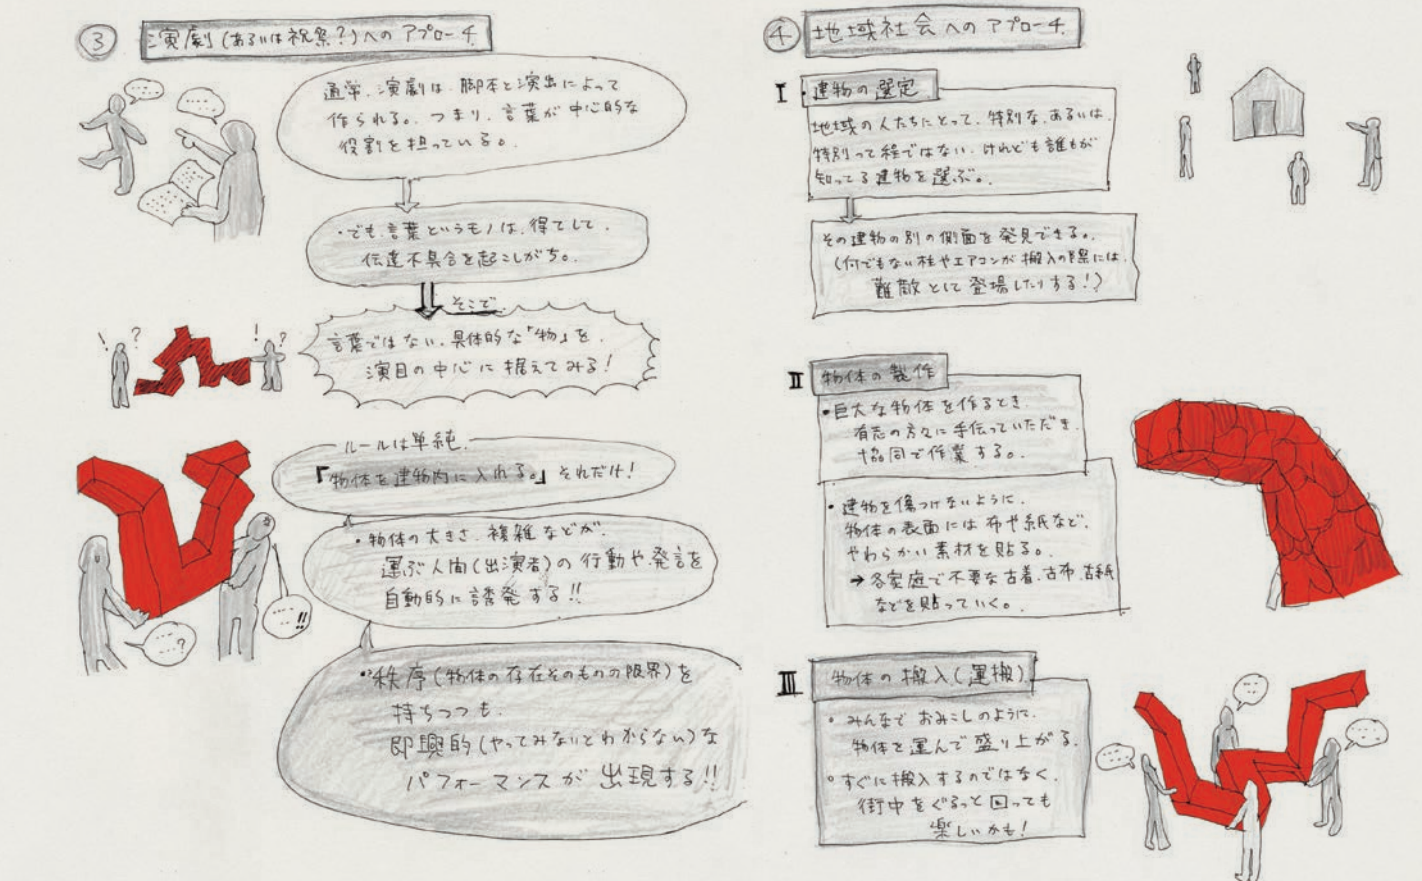 ③ 演劇(あるいは祝祭?)への アプローチ
通常、演劇は、脚本と演出によって
作られる。つまり、言葉が中心的な
役割を担っている。
・でも、言葉というモノは、得てして、
伝達不具合を起こしがち。
そこで
言葉ではない、具体的な「物」を、
演目の中心に据えてみる!
! ?
! ?
ルールは単純、
『物体を建物内に入れる。』それだけ!
・物体の大きさ、複雑などが、
運ぶ人間(出演者)の行動や発言を
自動的に誘発する!!
…?
…!!
・秩序(物体の存在そのものの限界)を
持ちつつも、
即興的(やってみないとわからない)な
パフォーマンスが出現する!!
④ 地域社会への アプローチ
Ⅰ ・建物の選定
地域の人たちにとって、特別な、あるいは、
特別って程ではない、けれども誰もが
知ってる建物を選ぶ。
その建物の別の側面を発見できる。
(何でもない柱やエアコンが搬入の際には、
難敵として登場したりする!)
Ⅱ 物体の製作
・巨大な物体を作るとき、
有志の方々に手伝っていただき、
協同で作業する。
・建物を傷つけないように、
物体の表面には布や紙など、
やわらかい素材を貼る。
→各家庭で不要な古着、古布、古紙
などを貼っていく。
Ⅲ 物体の搬入(運搬)
・みんなで おみこしのように、
物体を運んで盛り上がる。
・すぐに搬入するのではなく、
街中をぐるっと回っても
楽しいかも!